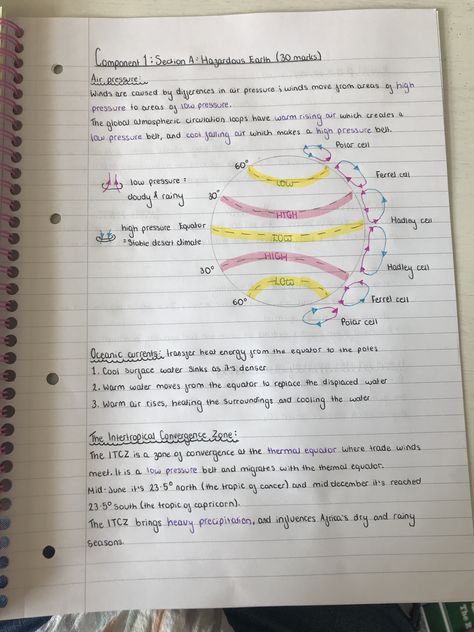 Component 1: Section A: Hazardous Earth (30 marks)
Air pressure:
Winds are caused by differences in air pressure; winds move from areas of high
pressure to areas of low pressure.
The global atmospheric circulation loops have warm rising air which creates a
low pressure belt, and cool falling air which makes a high pressure belt.
Polar cell
60°
Ferrel cell
LOW
low pressure =
cloudy & rainy
30°
HIGH
Hadley cell
high pressure Equator
= stable desert climate
LOW
HIGH
Hadley cell
30°
LOW
Ferrel cell
60°
Polar cell
Oceanic currents: transfer heat energy from the equator to the poles
1. Cool surface water sinks as it's denser
2. Warm water moves from the equator to replace the displaced water
3. Warm air rises, heating the surroundings and cooling the water
The Intertropical Convergence Zone:
The ITCZ is a zone of convergence at the thermal equator where trade winds
meet. It is a low pressure belt and migrates with the thermal equator.
Mid-June it's 23.5° north (the tropic of cancer) and mid december it's reached
23.5° south (the tropic of capricorn).
The ITCZ brings heavy precipitation, and influences Africa's dry and rainy
seasons.